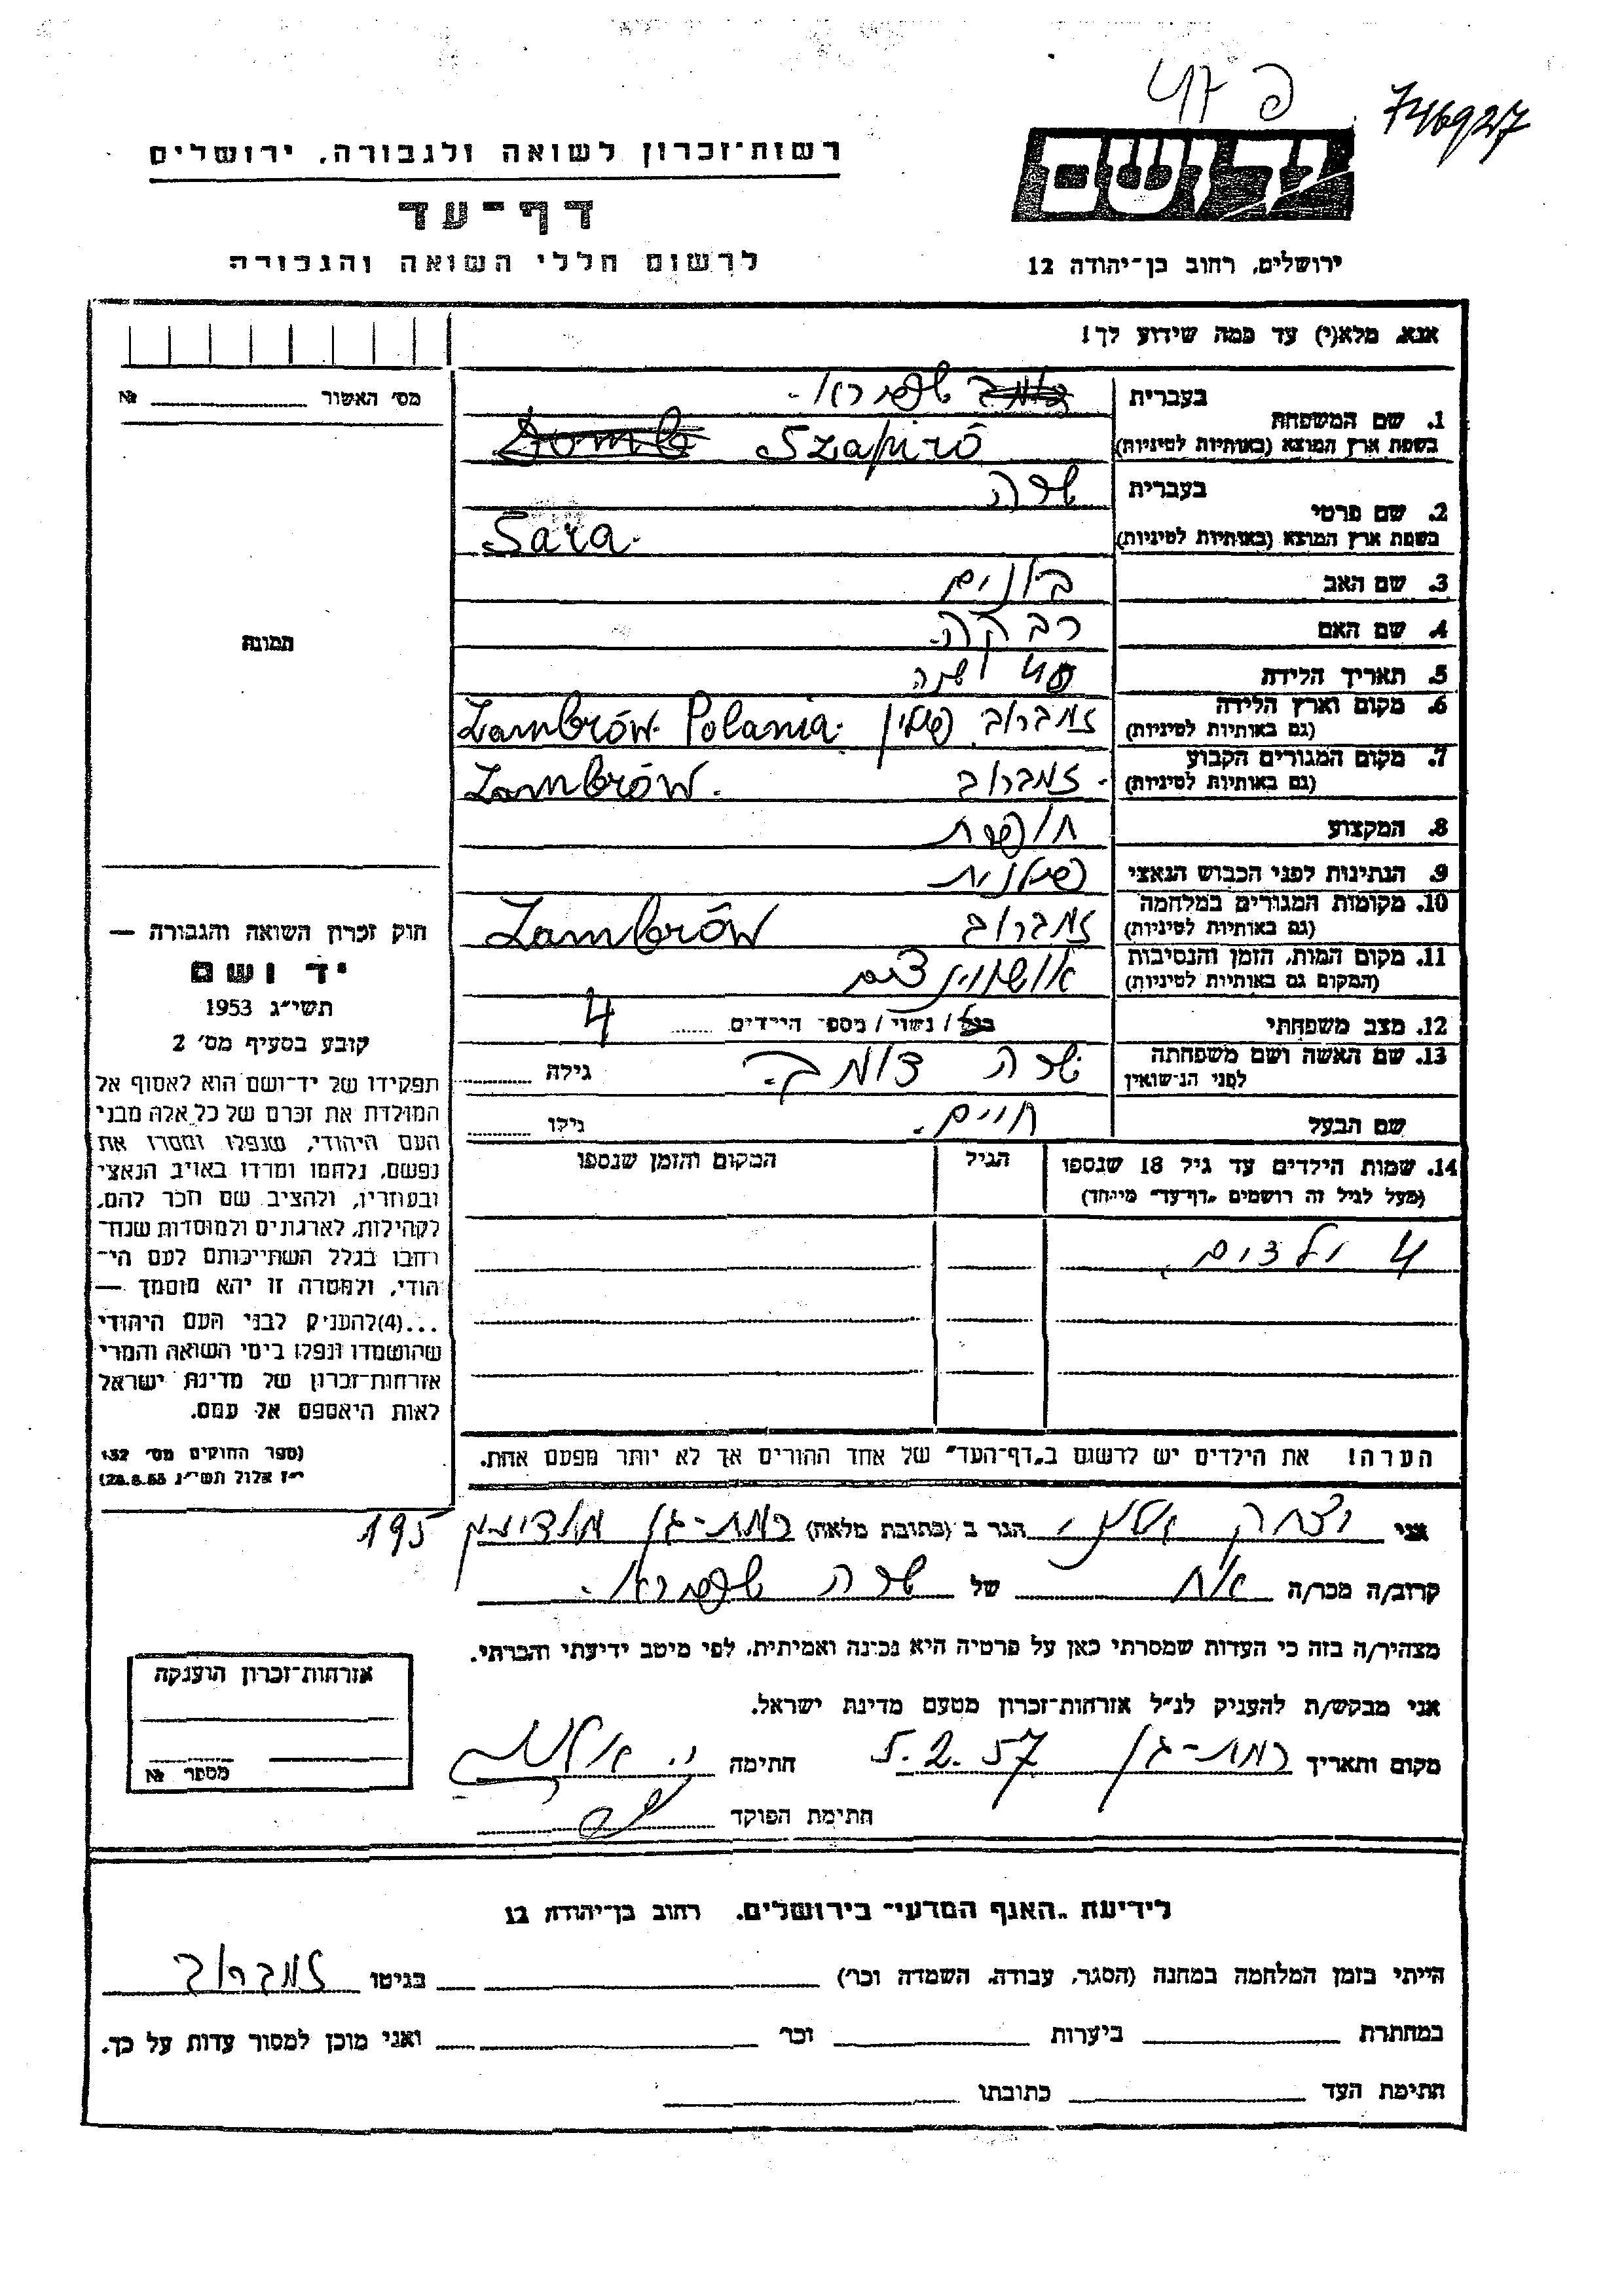 746927
יד ושם
רשות-זכרון לשואה ולגבורה, ירושלים
דף-עד
לרשום חללי השואה והגבורה
ירושלים, רחוב בן-יהודה 12
אנא, מלא(י) עד כמה שידוע לך!
מס' האשור № 
1. שם המשפחה
בעברית שפירא.
בשפת ארץ המוצא (באותיות לטיניות) Szapiro
2. שם פרטי
בעברית שרה
בשפת ארץ המוצא (באותיות לטיניות) Sara.
3. שם האב בונים
4. שם האם רבקה.
5. תאריך הלידה 40 שנה
6. מקום וארץ הלידה (גם באותיות לטיניות) זמברוב פולין Zambrów. Polania.
7. מקום המגורים הקבוע (גם באותיות לטיניות) זמברוב Zambrów.
8. המקצוע תופרת
9. הנתינות לפני הכבוש הנאצי פולנית
10. מקומות המגורים במלחמה (גם באותיות לטיניות) זמברוב Zambrów
11. מקום המות, הזמן והנסיבות (המקום גם באותיות לטיניות) אושווינצים
12. מצב משפחתי רווק / נשוי / מספר הילדים 4
13. שם האשה ושם משפחתה לפני הנישואין שרה דומב. גילה
שם הבעל חיים. גילו
14. שמות הילדים עד גיל 18 שנספו (מעל לגיל זה רושמים "דף-עד" מיוחד)
הגיל
המקום והזמן שנספו
4 ילדים
הערה! את הילדים יש לרשום ב"דף-העד" של אחד ההורים אך לא יותר מפעם אחת.
תמונה
חוק זכרון השואה והגבורה —
יד ושם
תשי"ג 1953
קובע בסעיף מס' 2
תפקידו של יד-ושם הוא לאסוף אל
המולדת את זכרם של כל אלה מבני
העם היהודי, שנפלו ומסרו את
נפשם, נלחמו ומרדו באויב הנאצי
ובעוזריו, ולהציב שם וזכר להם,
לקהילות, לארגונים ולמוסדות שנח-
רחבו בגלל השתייכותם לעם הי-
הודי, ולמטרה זו יהא מוסמך —
...(4) להעניק לבני העם היהודי
שהושמדו ונפלו בימי השואה והמרי
אזרחות-זכרון של מדינת ישראל
לאות היאספם אל עמם.
(ספר החוקים מס' 132
י"ז אלול תשי"ג 28.8.53)
אני יצחק הגר ב (כתובת מלאה) רמת-גן מודיעין 195
קרוב/ה מכר/ה אח של שרה שפירא.
מצהיר/ה בזה כי העדות שמסרתי כאן על פרטיה היא נכונה ואמיתית, לפי מיטב ידיעתי והכרתי.
אני מבקש/ת להעניק לנ"ל אזרחות-זכרון מטעם מדינת ישראל.
מקום ותאריך רמת-גן 5.2.57 חתימה
חתימת הפוקד
אזרחות-זכרון הוענקה
מספר №
לידיעת "האגף המדעי" בירושלים, רחוב בן-יהודה 12
הייתי בזמן המלחמה במחנה (הסגר, עבודה, השמדה וכו') בגיטו זמברוב
במחתרת ביערות וכו' ואני מוכן למסור עדות על כך.
חתימת העד כתובתו